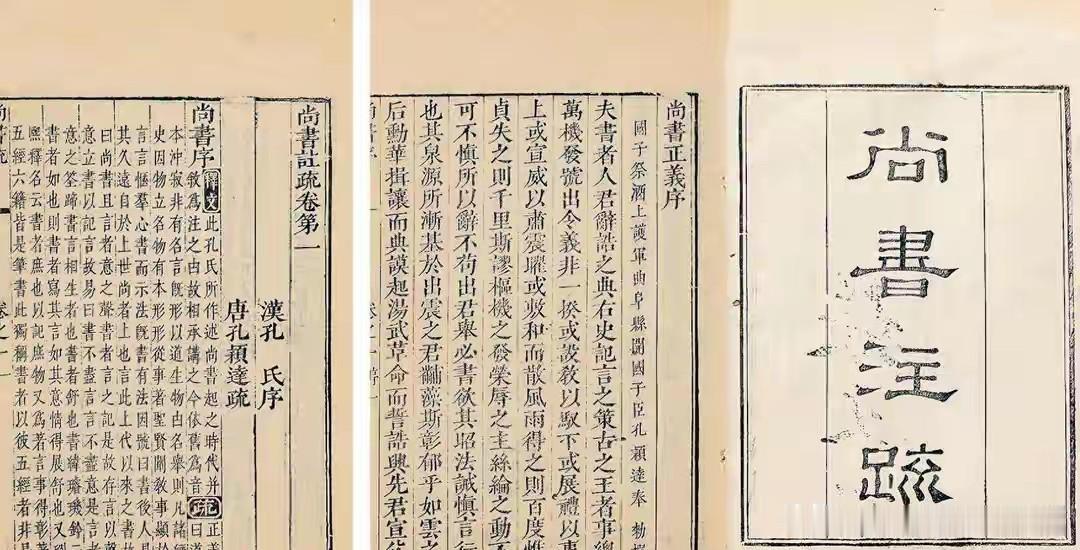 尚書注疏
尚書正義序
國子祭酒上護軍曲阜縣開國子臣孔 穎達奉 勅
夫書者人君辭誥之典右史記言之策古之王者事緫
萬機發號出令義非一揆或設教以馭下或展禮以事
上或宣威以肅震曜或敷和而散風雨得之則百度惟
貞失之則千里斯謬樞機之發榮辱之主絲綸之動
可不慎所以辭不苟出君舉必書欲其昭法誡慎言行
也其泉源所漸基於出震之君黼藻斯彰郁乎如雲之
后勳華揖讓而典謨起湯武革命而誓誥興先君宣
尚書註疏卷第一
漢孔 氏序
唐孔穎達疏
尚書序 釋文 此孔氏所作述尚書起之時代并
敘爲注之由故相承講之今依舊爲音 疏 正義曰道
本沖寂非有名言既形以道生物由名舉則凡諸經
史因物立名物有本形形從事著聖賢闡敎事顯於
言言愜羣心書而示法旣書有法因號曰書後人見
其久遠自於上世尚者上也言此上代以來之書故
曰尚書且言者意之聲書者言之記是故存言以
意立書以記言故易曰書不盡言言不盡意是言者
意之筌蹄書言相生者也書者舒也書緯璿璣鈐云
書者如也則書者寫其言如其意情得展舒也又劉
熙釋名云書者庶也以記庶物又爲著言事得彰著
五經六籍皆是筆書此獨稱書者以彼五經者非